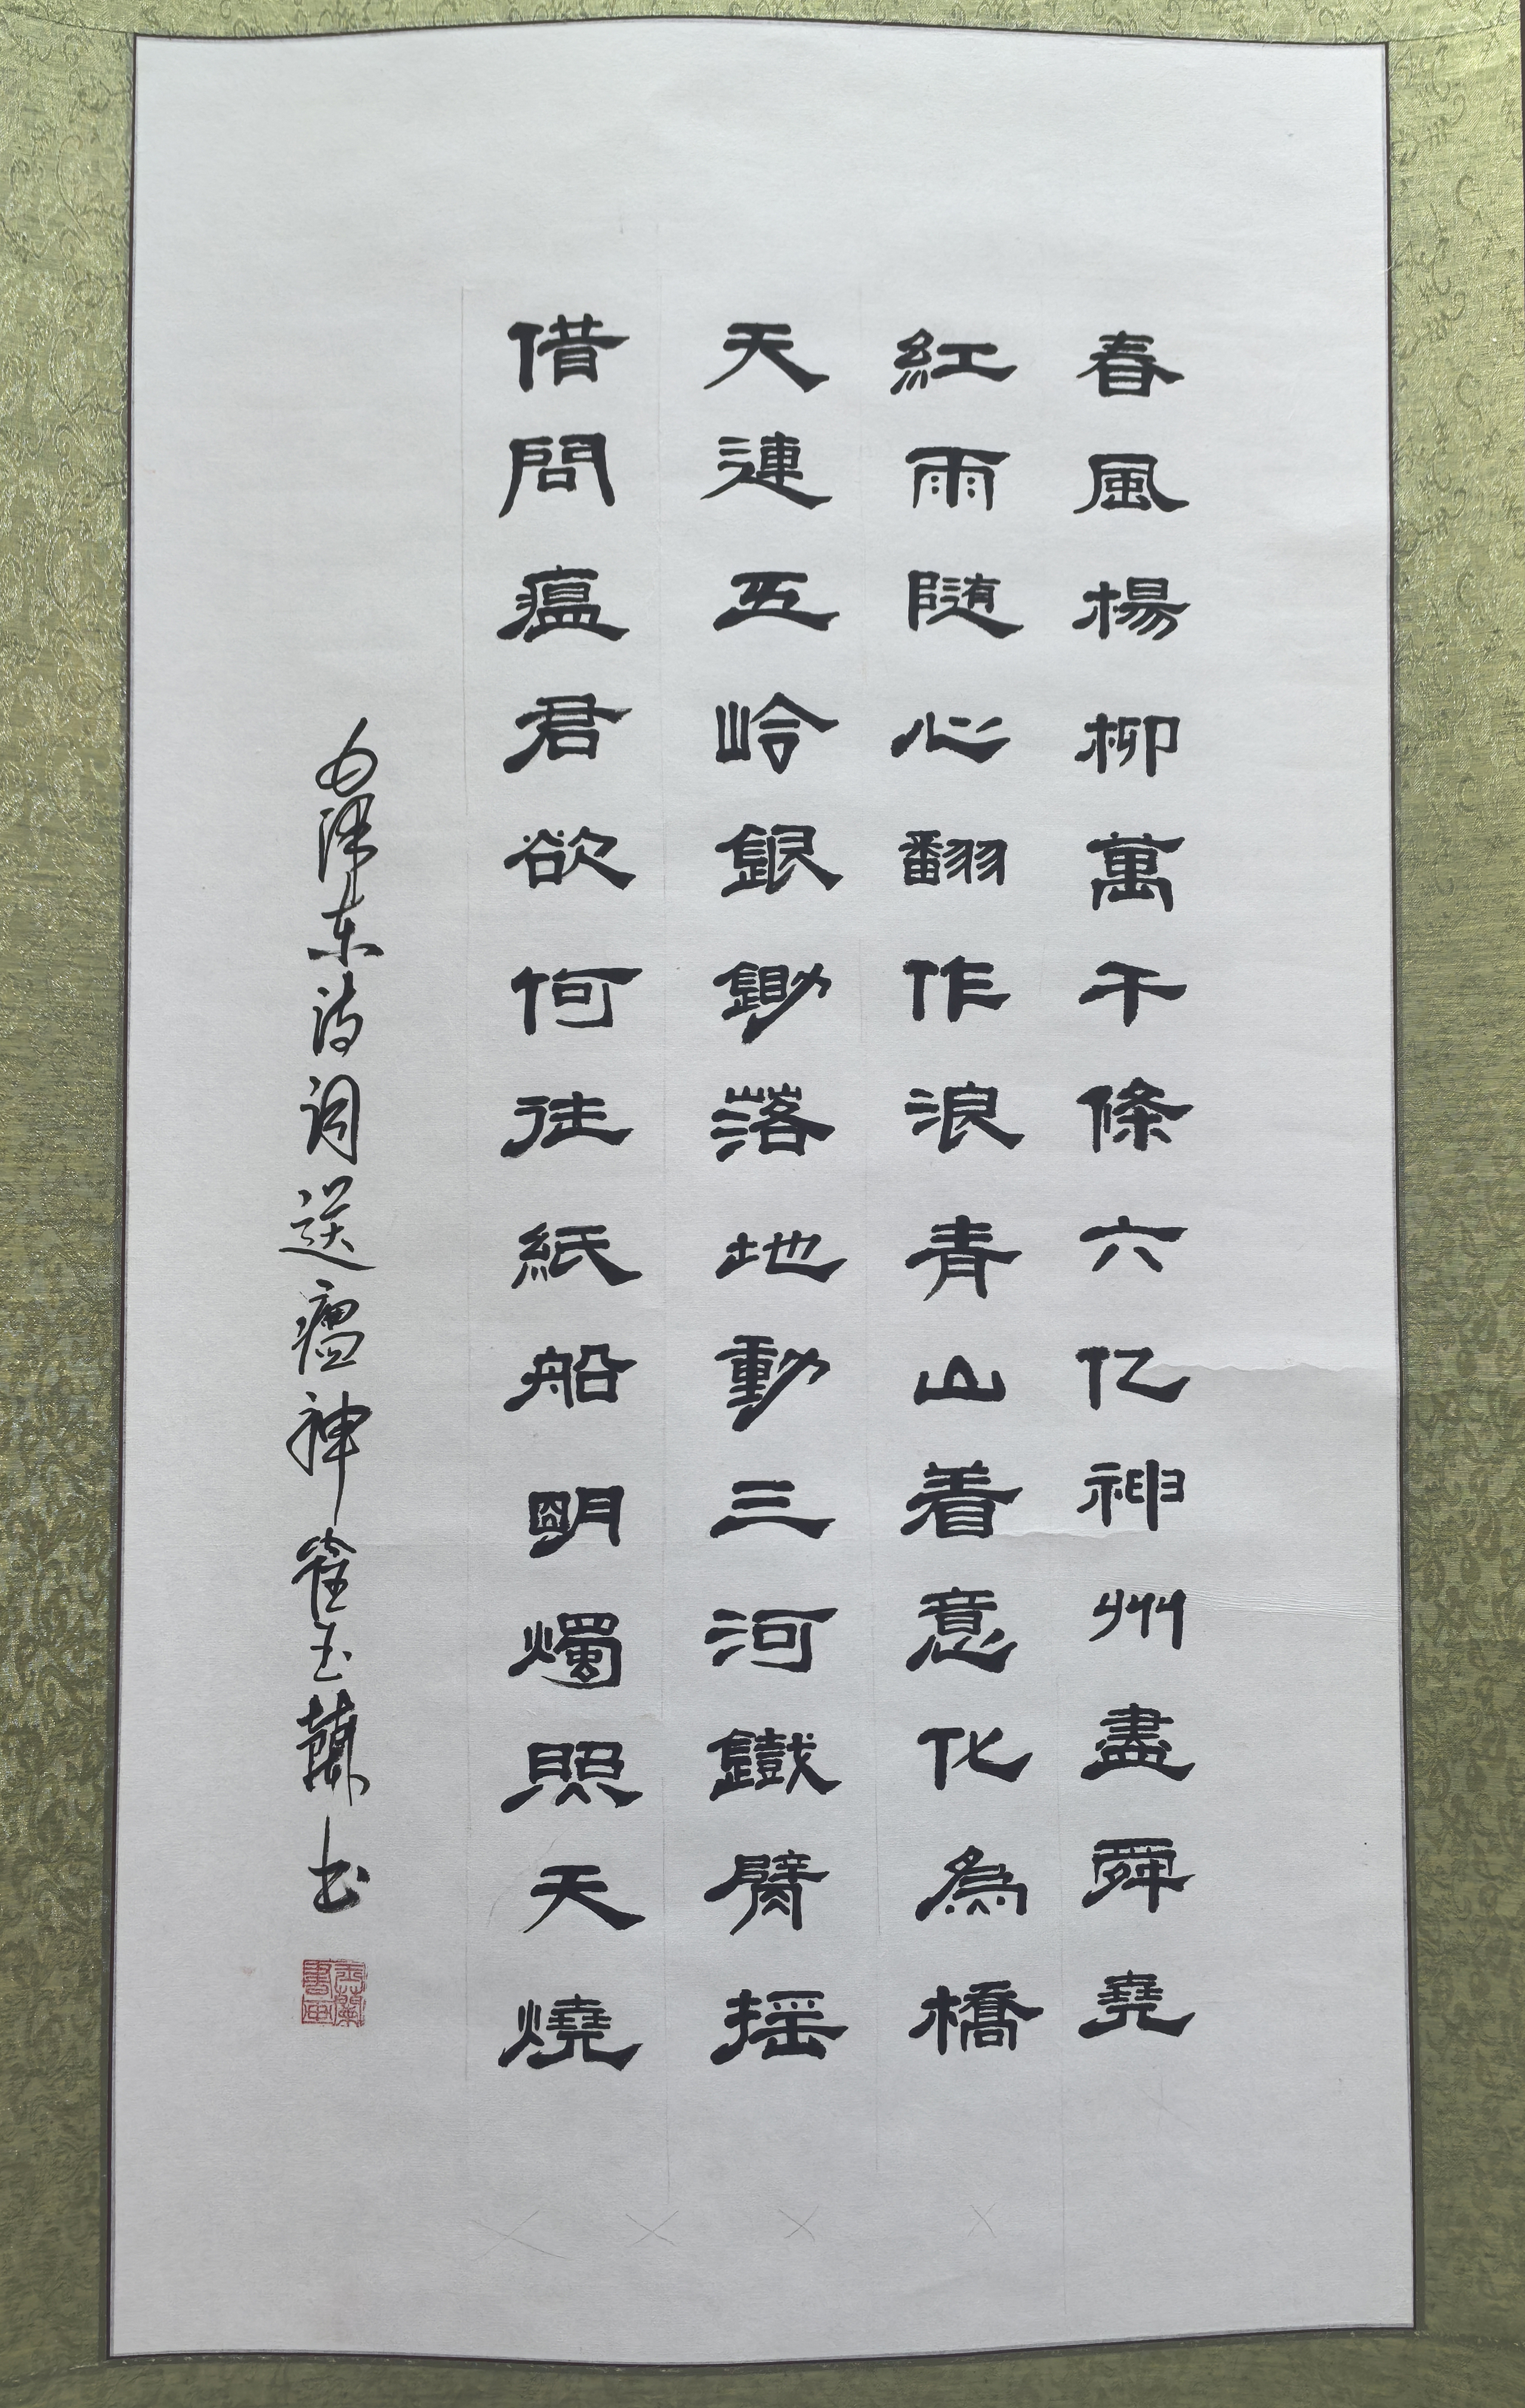 春風楊柳萬千條六亿神州盡舜堯
紅雨随心翻作浪青山着意化為橋
天連五岭銀鋤落地動三河鐵臂摇
借問瘟君欲何往紙船明燭照天燒
毛泽东诗词送瘟神崔玉蘭书
玉蘭書画